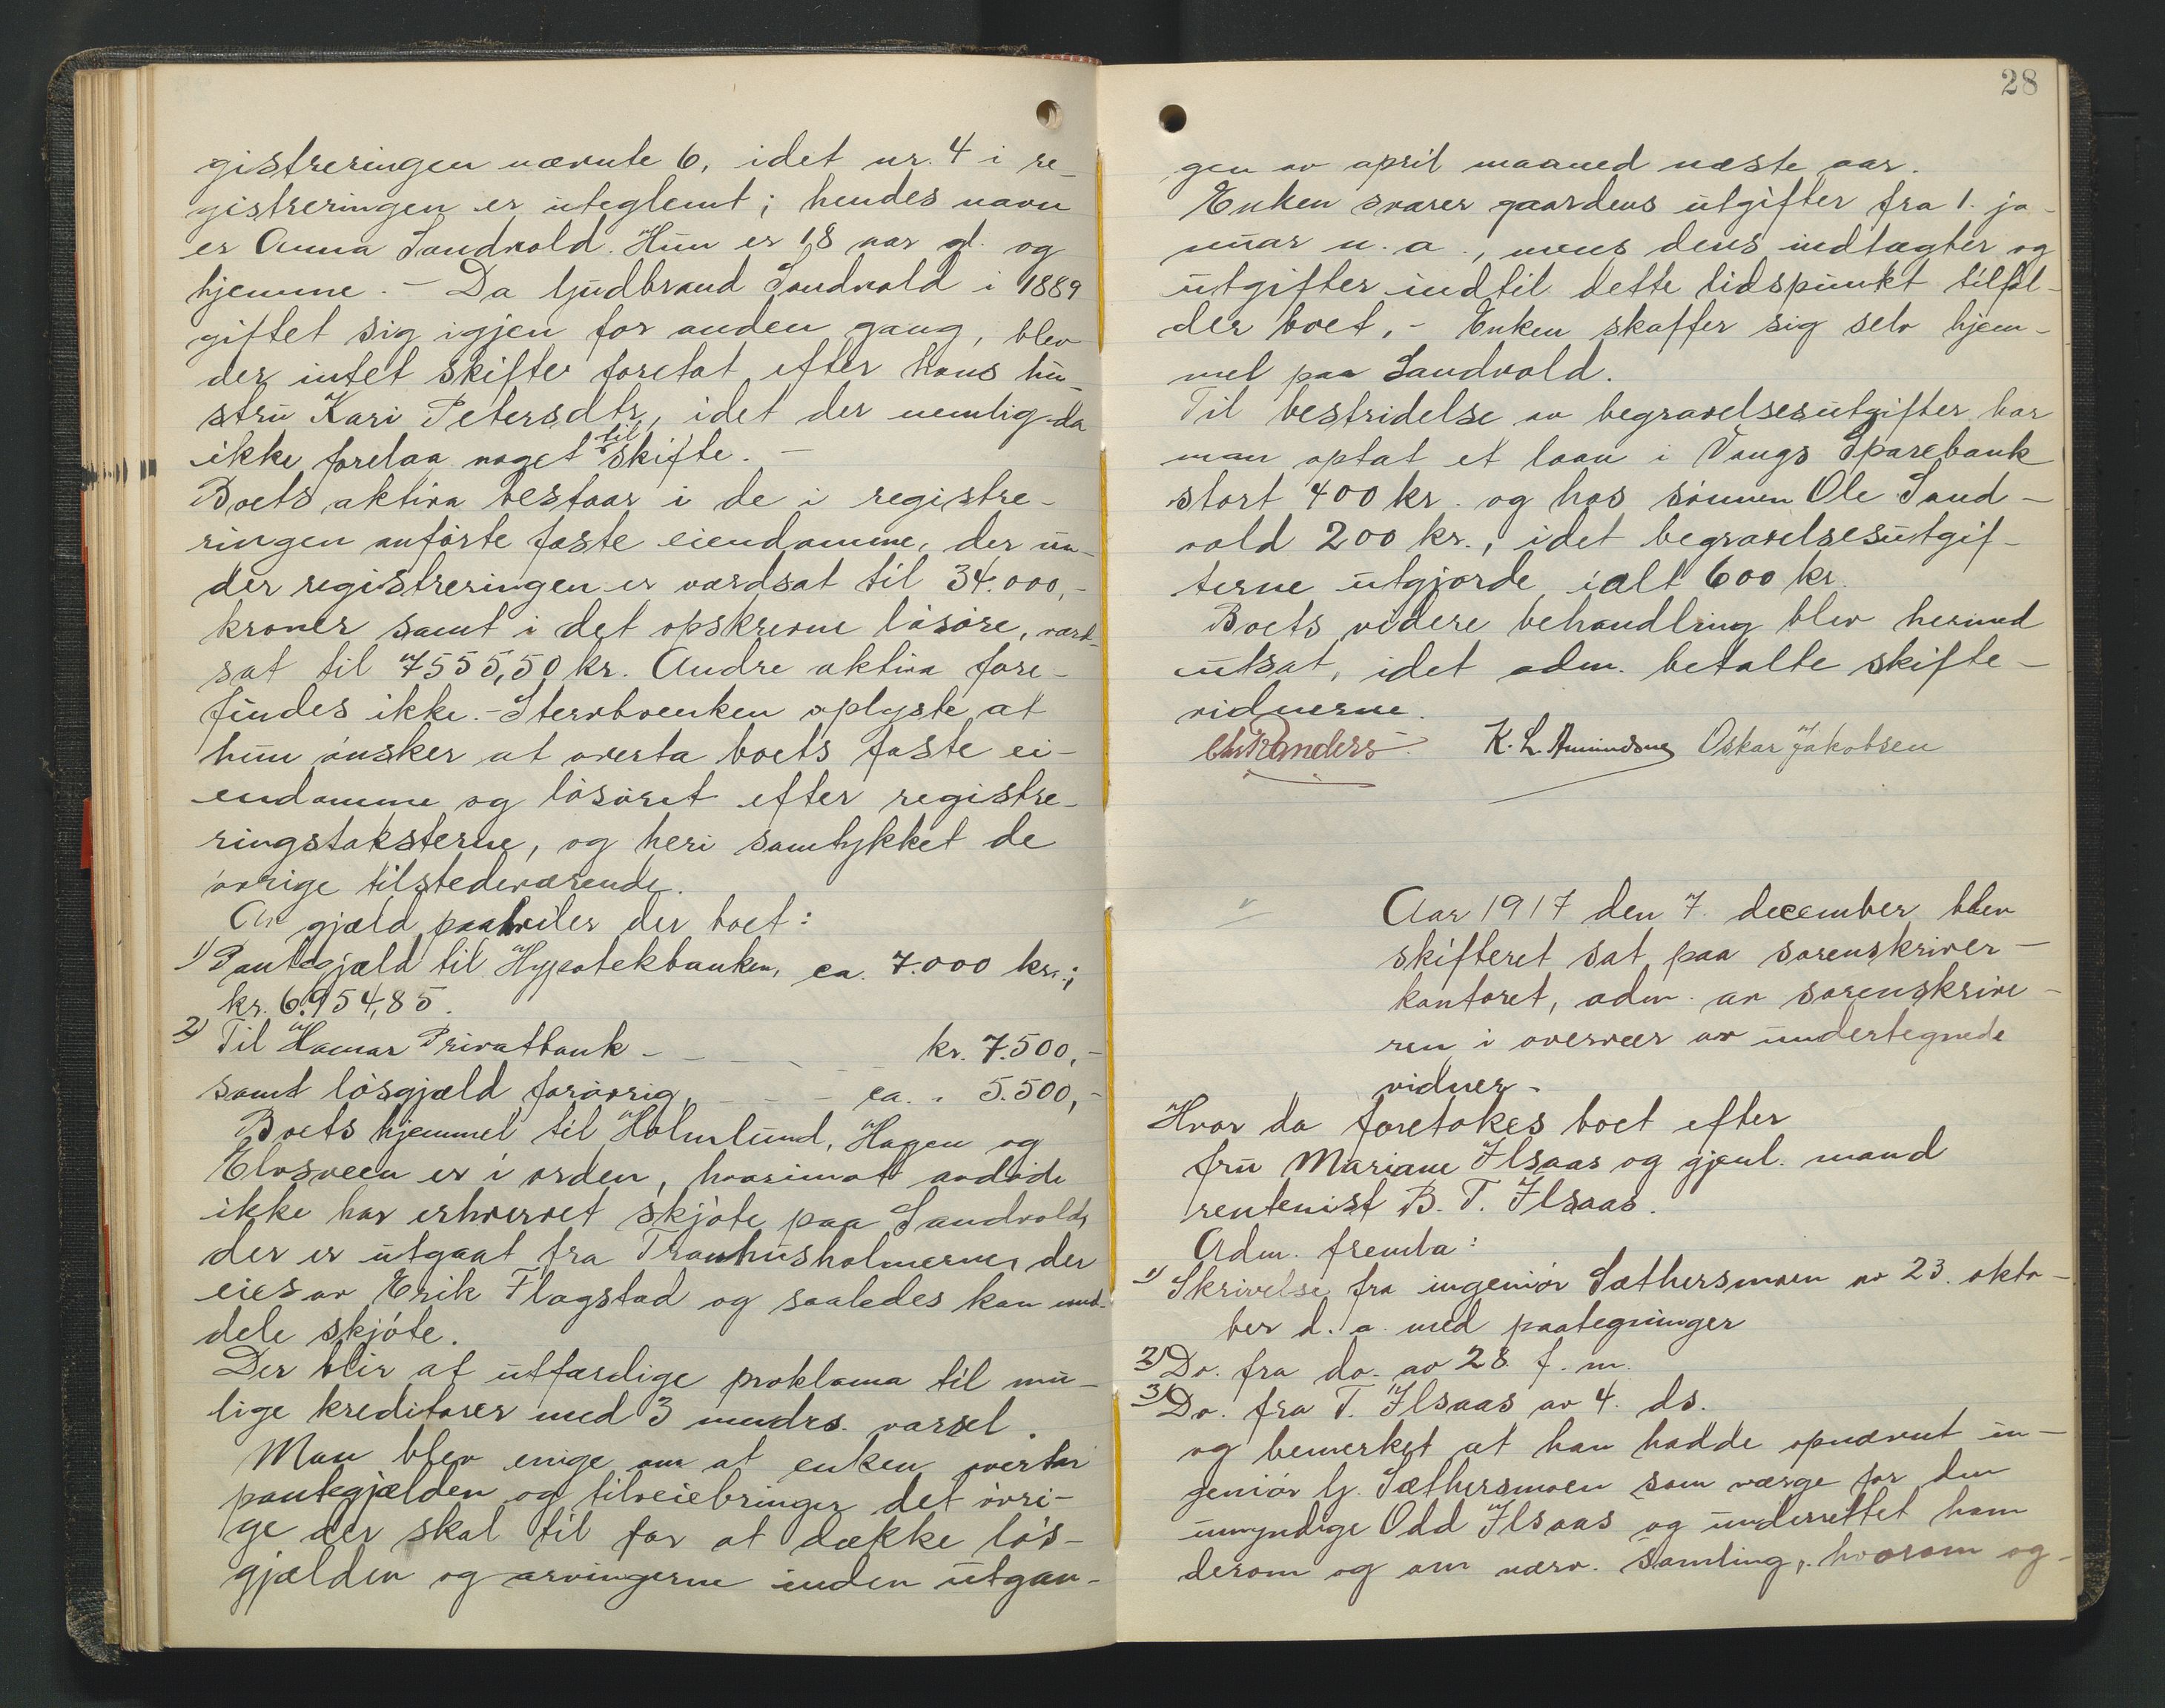 gistreringen nævnte 6, idet nr. 4 i re-
gistreringen er uteglemt; hendes navn
er Anna Sandvold. Hun er 18 aar gl. og
hjemme. – Da Gudbrand Sandvold i 1889
giftet sig igjen for anden gang, blev
der intet skifte foretat efter hans hu-
stru Kari Petersdtr, idet der nemlig da
ikke forelaa noget til skifte. –
Boets aktiva bestaar i de i registre-
ringen anførte faste eiendomme, der un-
der registreringen er værdsat til 34.000,-
kroner samt i det opskrevne løsøre, værd-
sat til 7555,50 kr. Andre aktiva fore-
findes ikke. – Stervboenken oplyste at
hun ønsker at overta boets faste ei-
endomme og løsøret efter registre-
ringstaksterne, og heri samtykket de
øvrige tilstedeværende.
Av gjæld paahviler der boet:
1) Pantegjæld til Hypotekbanken, ca. 7.000 kr.;
kr. 6.954,85.
2) Til Hamar Privatbank - - - - kr. 7.500,-
samt løsgjæld forøvrig, - - - ca. " 5.500,-
Boets hjemmel til Holmlund, Hagen og
Elvsveen er i orden, hvorimot avdøde
ikke har erhvervet skjøte paa Sandvold,
der er utgaat fra Tranhusholmerne, der
eies av Erik Flagstad og saaledes kan med-
dele skjøte.
Der blir at utfærdige proklama til mu-
lige kreditorer med 3 mndrs. varsel.
Man blev enige om at enken overtar
pantegjælden og tilveiebringer det øvri-
ge der skal til for at dække løs-
gjælden og arvingerne inden utgan-
28
gen av april maaned næste aar.
Enken svarer gaardens utgifter fra 1. ja-
nuar n. a., mens dens indtægter og
utgifter indtil dette tidspunkt tilfal-
der boet. - Enken skaffer sig selv hjem-
mel paa Sandvold.
Til bestridelse av begravelsesutgifter har
man optat et laan i Vangs Sparebank
stort 400 kr. og hos sønnen Ole Sand-
vold 200 kr., idet begravelsesutgif-
terne utgjorde ialt 600 kr.
Boets videre behandling blev hermed
utsat, idet adm. betalte skifte-
vidnerne.
Chr Randers K. L. Amundsen Oskar Jakobsen
Aar 1917 den 7. december blev
skifteret sat paa sorenskriver-
kontoret, adm. av sorenskrive-
ren i overvær av undertegnede
vidner.
Hvor da foretokes boet efter
fru Mariane Ilsaas og gjenl. mand
rentenist B. T. Ilsaas.
Adm. fremla:
1) Skrivelse fra ingeniør Sæthersmoen av 23. okto-
ber d. a. med paategninger
2) Do. fra do. av 28. f. m.
3) Do. fra T. Ilsaas av 4. ds.
og bemerket at han hadde opnævnt in-
geniør G. Sæthersmoen som værge for den
umyndige Odd Ilsaas og underrettet ham
derom og om nærv. samling, hvorom og-